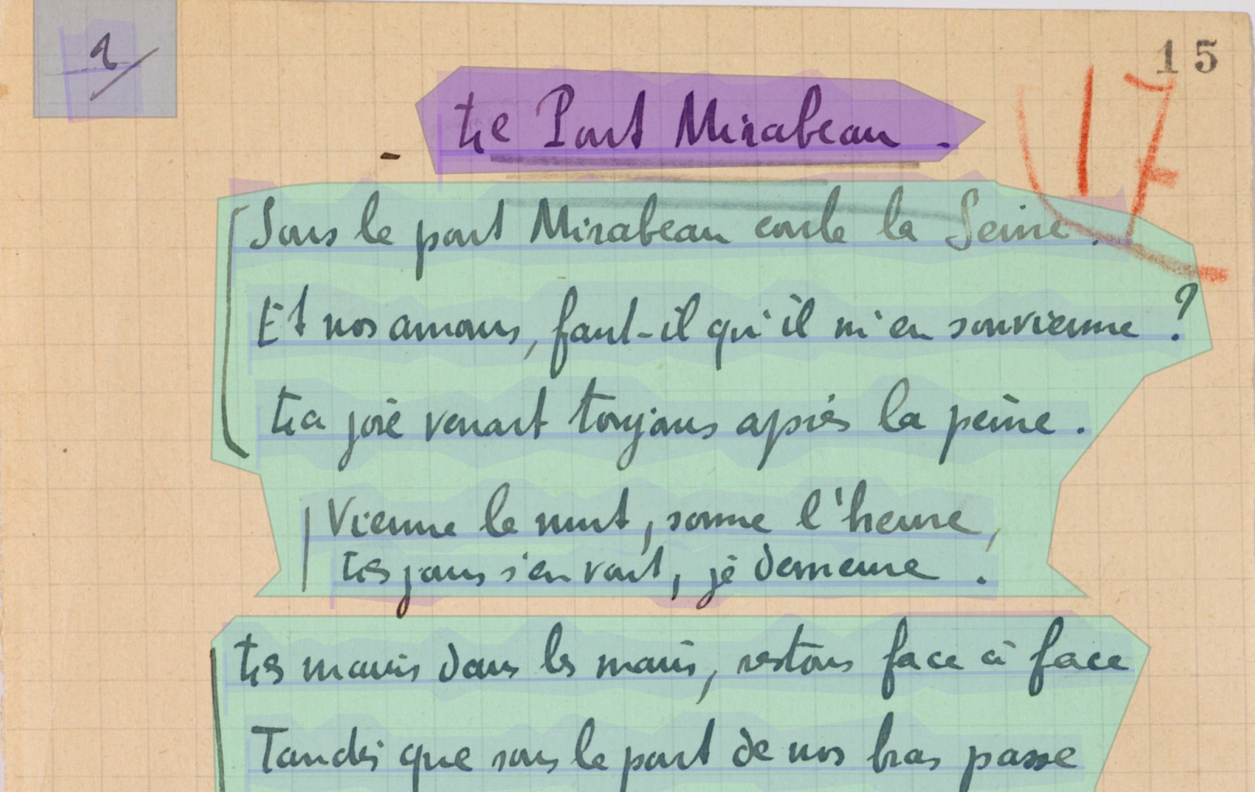 1/
15
17
- Le Pont Mirabeau.
Sous le pont Mirabeau coule la Seine.
Et nos amours, faut-il qu'il m'en souvienne ?
La joie venait toujours après la peine.
Vienne la nuit, sonne l'heure,
Les jours s'en vont, je demeure.
Les mains dans les mains, restons face à face
Tandis que sous le pont de nos bras passe